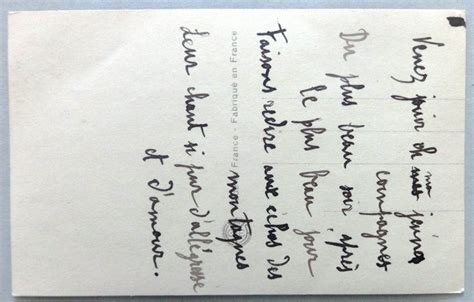 Venez jouir oh mes jeunes
ma
compagnes
Du plus beau soir après
le plus beau jour
Faisons redire aux échos des
montagnes
Leur chant si pur d'allégresse
et d'amour.
France - Fabriqué en France